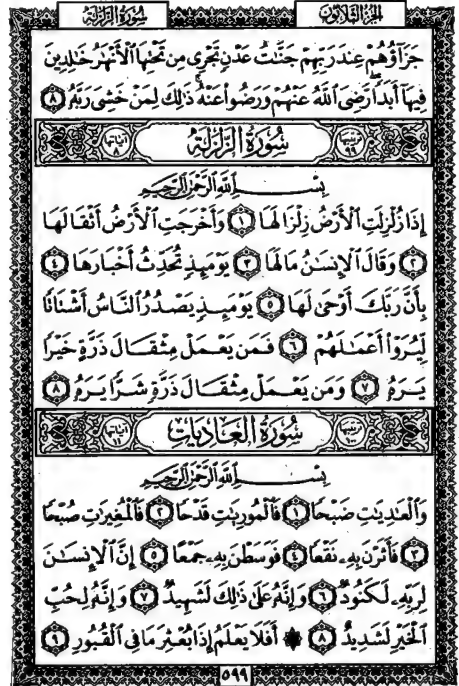 سُورَةُ الزَّلْزَلَةِ الجُزْءُ الثَّلَاثُونَ
جَزَآؤُهُمْ عِندَ رَبِّهِمْ جَنَّٰتُ عَدْنٍ تَجْرِى مِن تَحْتِهَا ٱلْأَنْهَٰرُ خَٰلِدِينَ
فِيهَآ أَبَدًا رَّضِىَ ٱللَّهُ عَنْهُمْ وَرَضُوا۟ عَنْهُ ذَٰلِكَ لِمَنْ خَشِىَ رَبَّهُۥ ٨
ترتيبها ٩٩ سُورَةُ الزَّلْزَلَةِ آياتها ٨
بِسْمِ ٱللَّهِ ٱلرَّحْمَٰنِ ٱلرَّحِيمِ
إِذَا زُلْزِلَتِ ٱلْأَرْضُ زِلْزَالَهَا ١ وَأَخْرَجَتِ ٱلْأَرْضُ أَثْقَالَهَا
٢ وَقَالَ ٱلْإِنسَٰنُ مَا لَهَا ٣ يَوْمَئِذٍ تُحَدِّثُ أَخْبَارَهَا ٤
بِأَنَّ رَبَّكَ أَوْحَىٰ لَهَا ٥ يَوْمَئِذٍ يَصْدُرُ ٱلنَّاسُ أَشْتَاتًا
لِّيُرَوْا۟ أَعْمَٰلَهُمْ ٦ فَمَن يَعْمَلْ مِثْقَالَ ذَرَّةٍ خَيْرًا
يَرَهُۥ ٧ وَمَن يَعْمَلْ مِثْقَالَ ذَرَّةٍ شَرًّا يَرَهُۥ ٨
ترتيبها ١٠٠ سُورَةُ العَادِيَاتِ آياتها ١١
بِسْمِ ٱللَّهِ ٱلرَّحْمَٰنِ ٱلرَّحِيمِ
وَٱلْعَٰدِيَٰتِ ضَبْحًا ١ فَٱلْمُورِيَٰتِ قَدْحًا ٢ فَٱلْمُغِيرَٰتِ صُبْحًا
٣ فَأَثَرْنَ بِهِۦ نَقْعًا ٤ فَوَسَطْنَ بِهِۦ جَمْعًا ٥ إِنَّ ٱلْإِنسَٰنَ
لِرَبِّهِۦ لَكَنُودٌ ٦ وَإِنَّهُۥ عَلَىٰ ذَٰلِكَ لَشَهِيدٌ ٧ وَإِنَّهُۥ لِحُبِّ
ٱلْخَيْرِ لَشَدِيدٌ ٨ ۞ أَفَلَا يَعْلَمُ إِذَا بُعْثِرَ مَا فِى ٱلْقُبُورِ ٩
٥٩٩